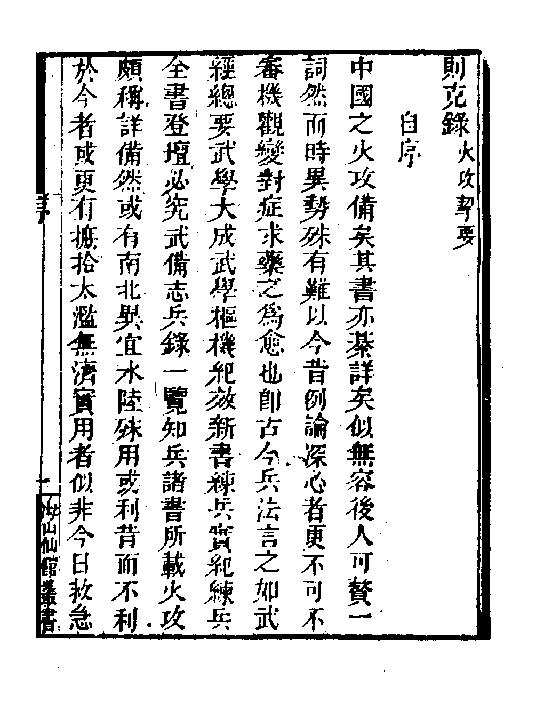 則克錄火攻挈要
自序
中國之火攻備矣其書亦綦詳矣似無容後人可贅一
詞然而時異勢殊有難以今昔例論深心者更不可不
審機觀變對症求藥之為愈也卽古今兵法言之如武
經總要武學大成武學樞機紀效新書練兵實紀練兵
全書登壇必究武備志兵錄一覽知兵諸書所載火攻
頗稱詳備然或有南北異宜水陸殊用或利昔而不利
於今者或更有摭拾太濫無濟實用者似非今日救急
序
一
海山仙館叢書